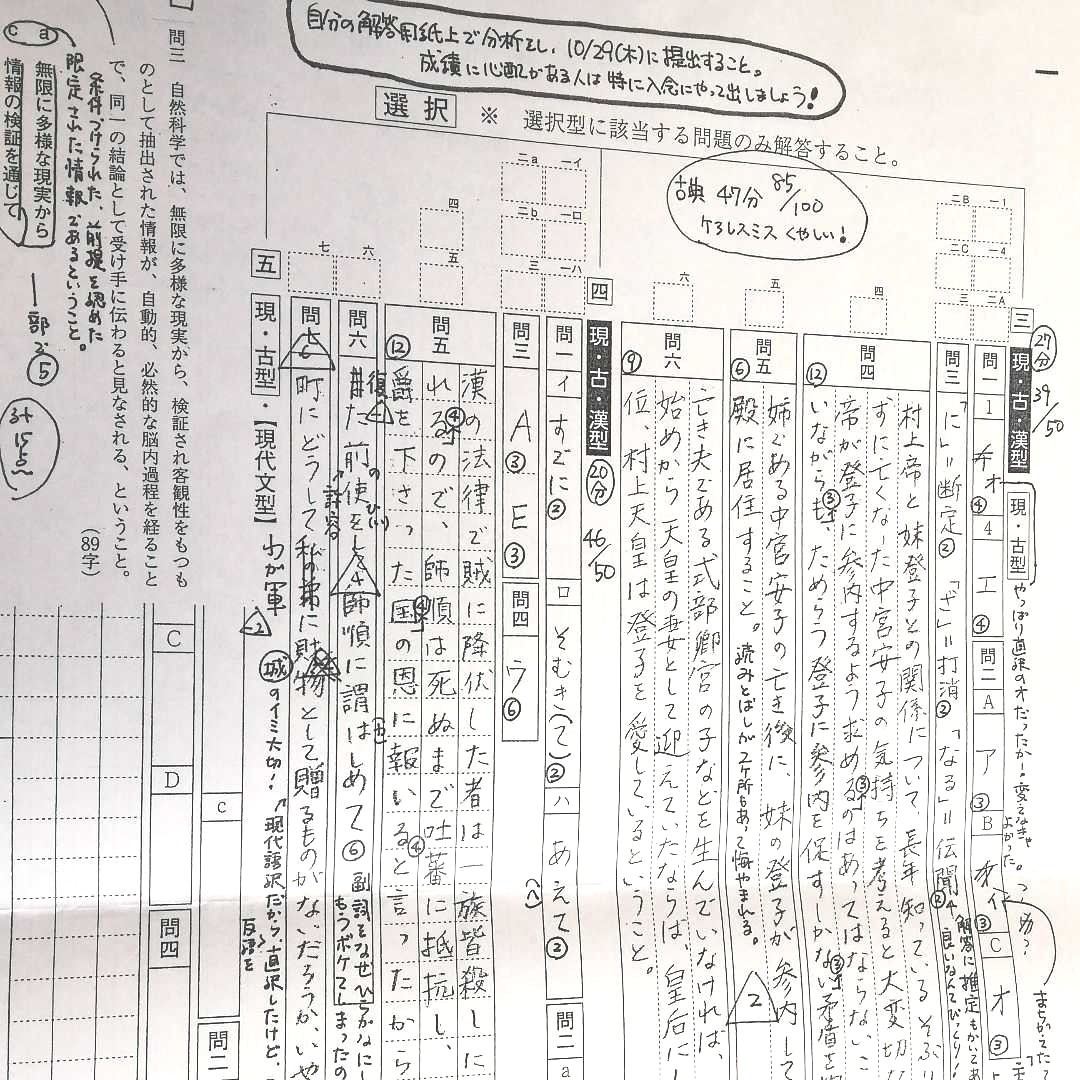 自分の解答用紙上で分析をし、10/29(木)に提出すること。
成績に心配がある人は特に入念にやって出しましょう！
選択
※ 選択型に該当する問題のみ解答すること。
古典 47分 85/100
ケアレスミス くやしい！
三
現・古・漢型
現・古型
27分
39/50
やっぱり直訳のオだったかー！変えなきゃ
よかった。
問一
1
オ
④
4
エ
④
問二
A
ア
③
B
イ
③
C
オ
③
問三
「に」＝断定②「ざ」＝打消②「なる」＝伝聞②
解答に推定もかいてあ
良いなんてびっくり！
問四
村上帝と妹登子との関係について、長年知っているそぶり
ずに亡くなった中宮安子の気持ちを考えると大変切な
帝が登子に参内するよう求めるのはあってはならないこ
いながらも、ためらう登子に参内を促すしかない矛盾を
⑫
問五
姉である中宮安子の亡き後に、妹の登子が参内して
殿に居住すること。
⑥
読みとばしが2ヶ所もあって悔やまれる。
2
問六
亡き夫である式部卿宮の子などを生んでいなければ、
始めから天皇の妻として迎えていたならば、皇后に
位、村上天皇は登子を愛しているということ。
⑨
四
現・古・漢型
20分
46/50
問一
イ
すでに②
ロ
そむき(て)②
ハ
あえて②
(へ)
問二
a
問三
A
③
E
③
問四
ウ
⑥
問五
漢の法律で賊に降伏した者は一族皆殺しに
れるので、師順は死ぬまで吐蕃に抵抗し、
爵を下さった国の恩に報いると言ったから
⑫
問六
復た前の使をして師順に謂はしめて⑥
副詞をなぜひらがなにし
もうボケてしまったの
問七
町にどうして私の弟に財物として贈るものがないだろうか、いや
わが軍
城のイミ大切！
"現代語訳"だから、直訳したけど、
反語を
五
現・古型・【現代文型】
問三 自然科学では、無限に多様な現実から、検証され客観性をもつも
のとして抽出された情報が、自動的、必然的な脳内過程を経ること
で、同一の結論として受け手に伝わると見なされる、ということ。
（89字）
条件づけられた、前提を認めた
限定された情報であるということ。
a
c
無限に多様な現実から
情報の検証を通じて
部で⑤
計15点
C
D
c
問四
問二